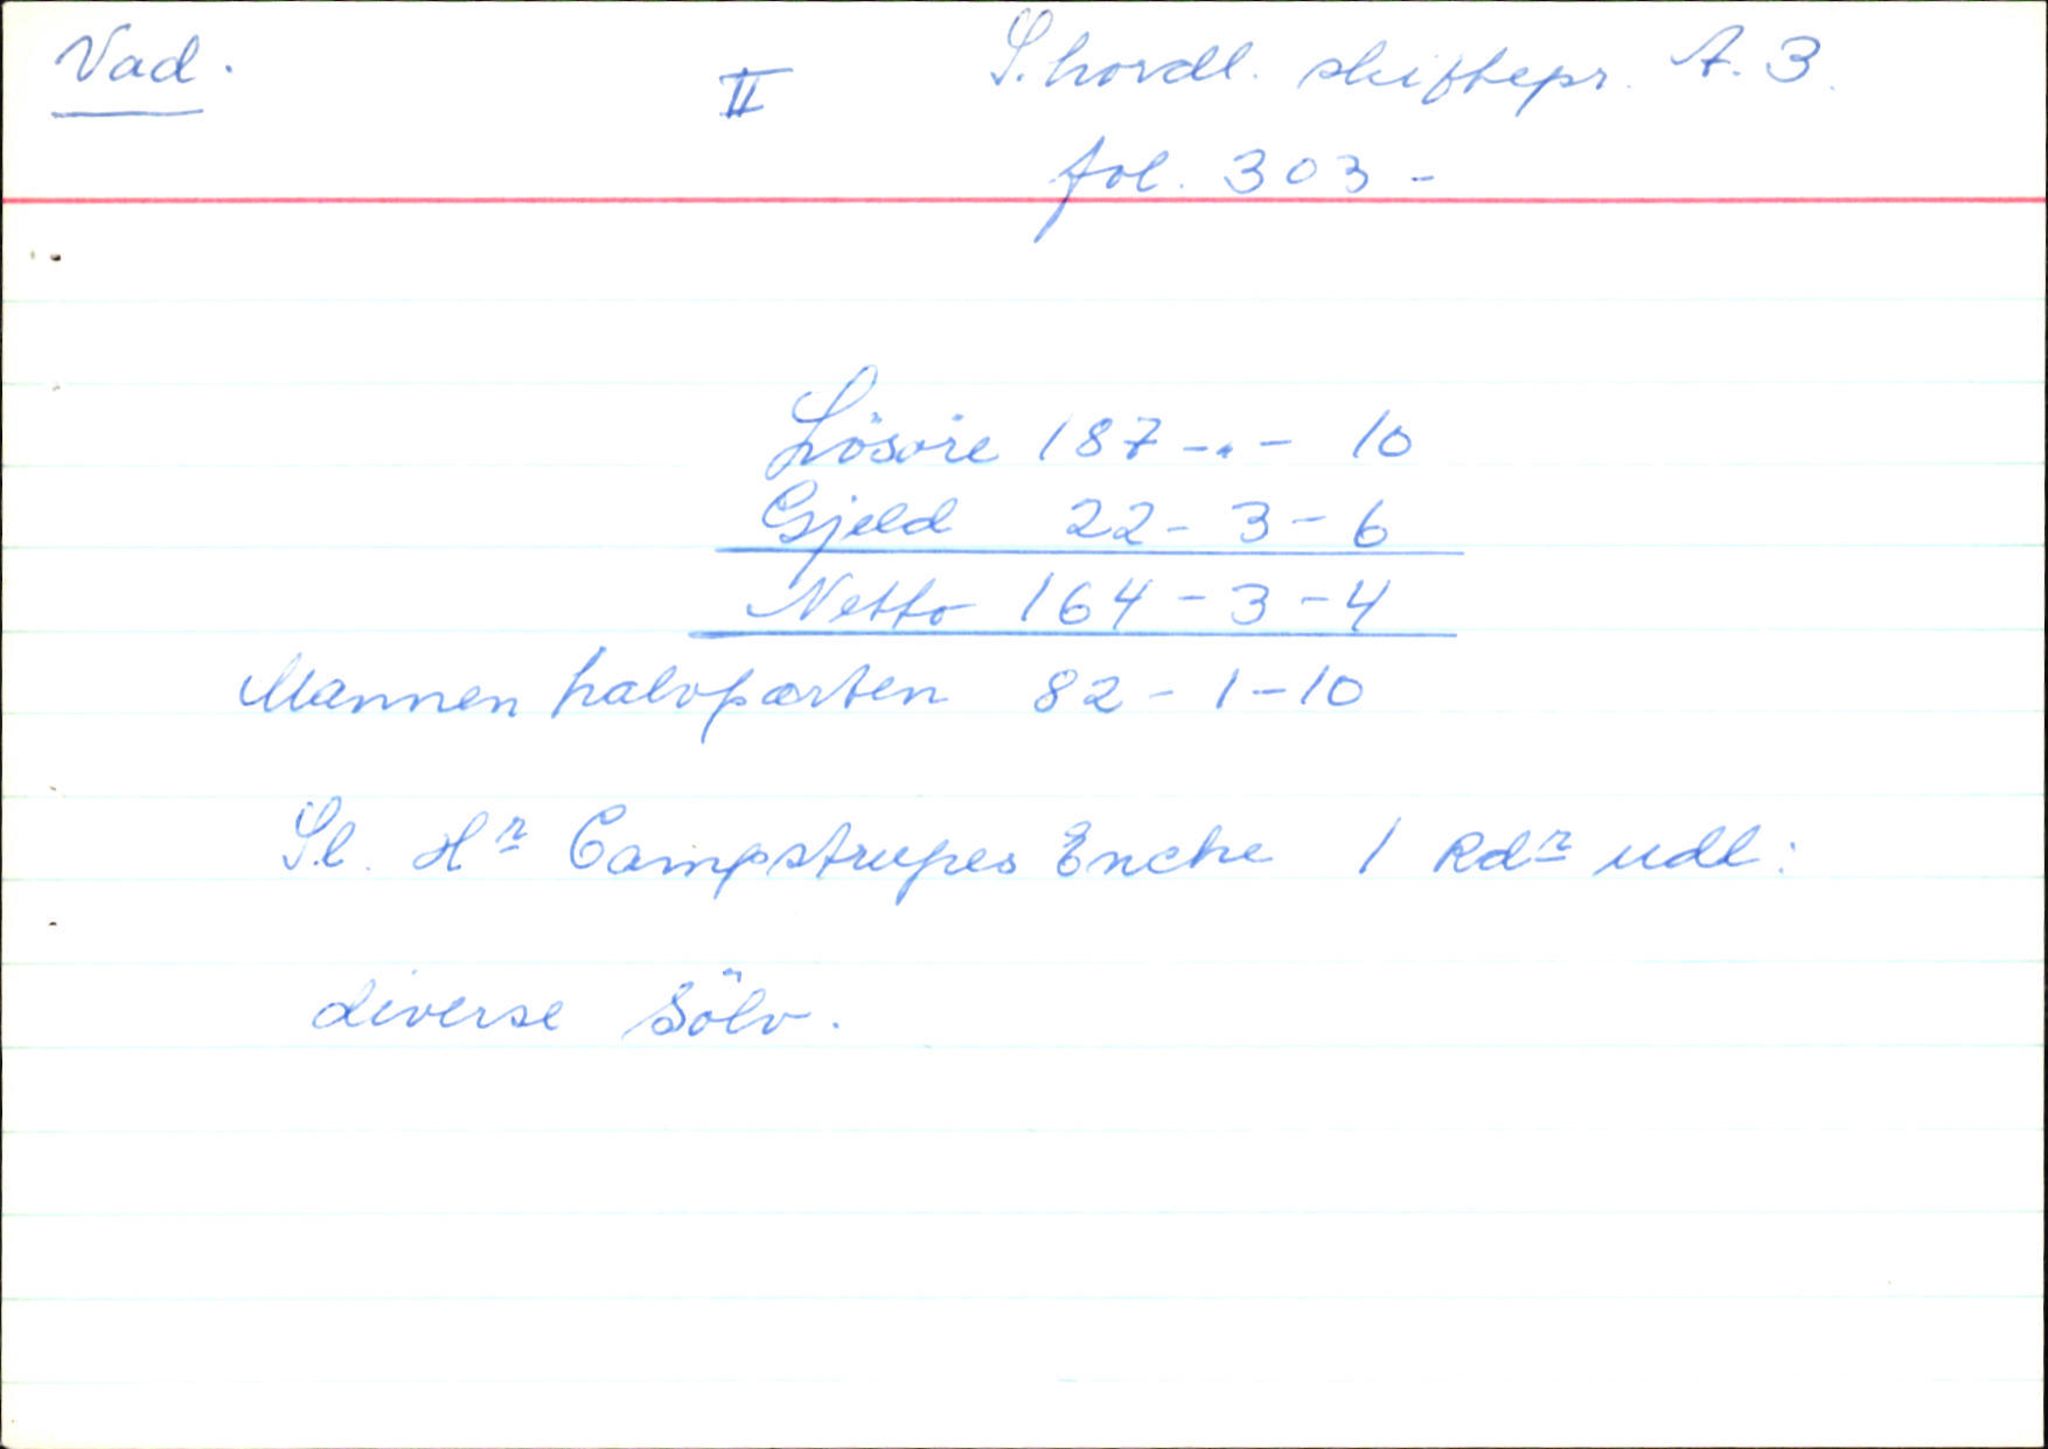 Vad.
II
S.hordl. skiftepr. A. 3.
fol. 303 -
Lösöre 187 - . - 10
Gjeld 22 - 3 - 6
Netto 164 - 3 - 4
Mannen halvparten 82 - 1 - 10
Sl. Hr Campstrupes Encke 1 Rdr udl:
diverse Sölv.